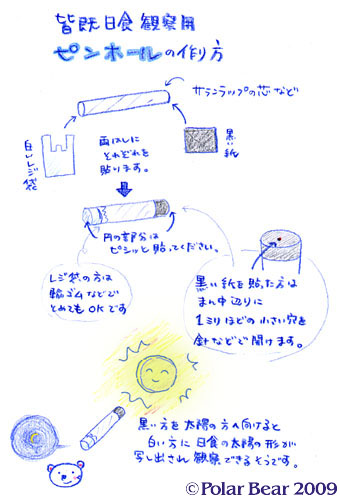 皆既日食観察用
ピンホールの作り方
サランラップの芯など
白いレジ袋
両はしに
それぞれを
貼ります。
黒い紙
円の部分は
ピシッと貼ってください。
レジ袋の方は
輪ゴムなどで
とめてもOKです
黒い紙を貼った方は
まん中辺りに
1ミリほどの小さい穴を
針などで開けます。
黒い方を太陽の方へ向けると
白い方に日食の太陽の形が
写し出され観察できるそうです。
© Polar Bear 2009